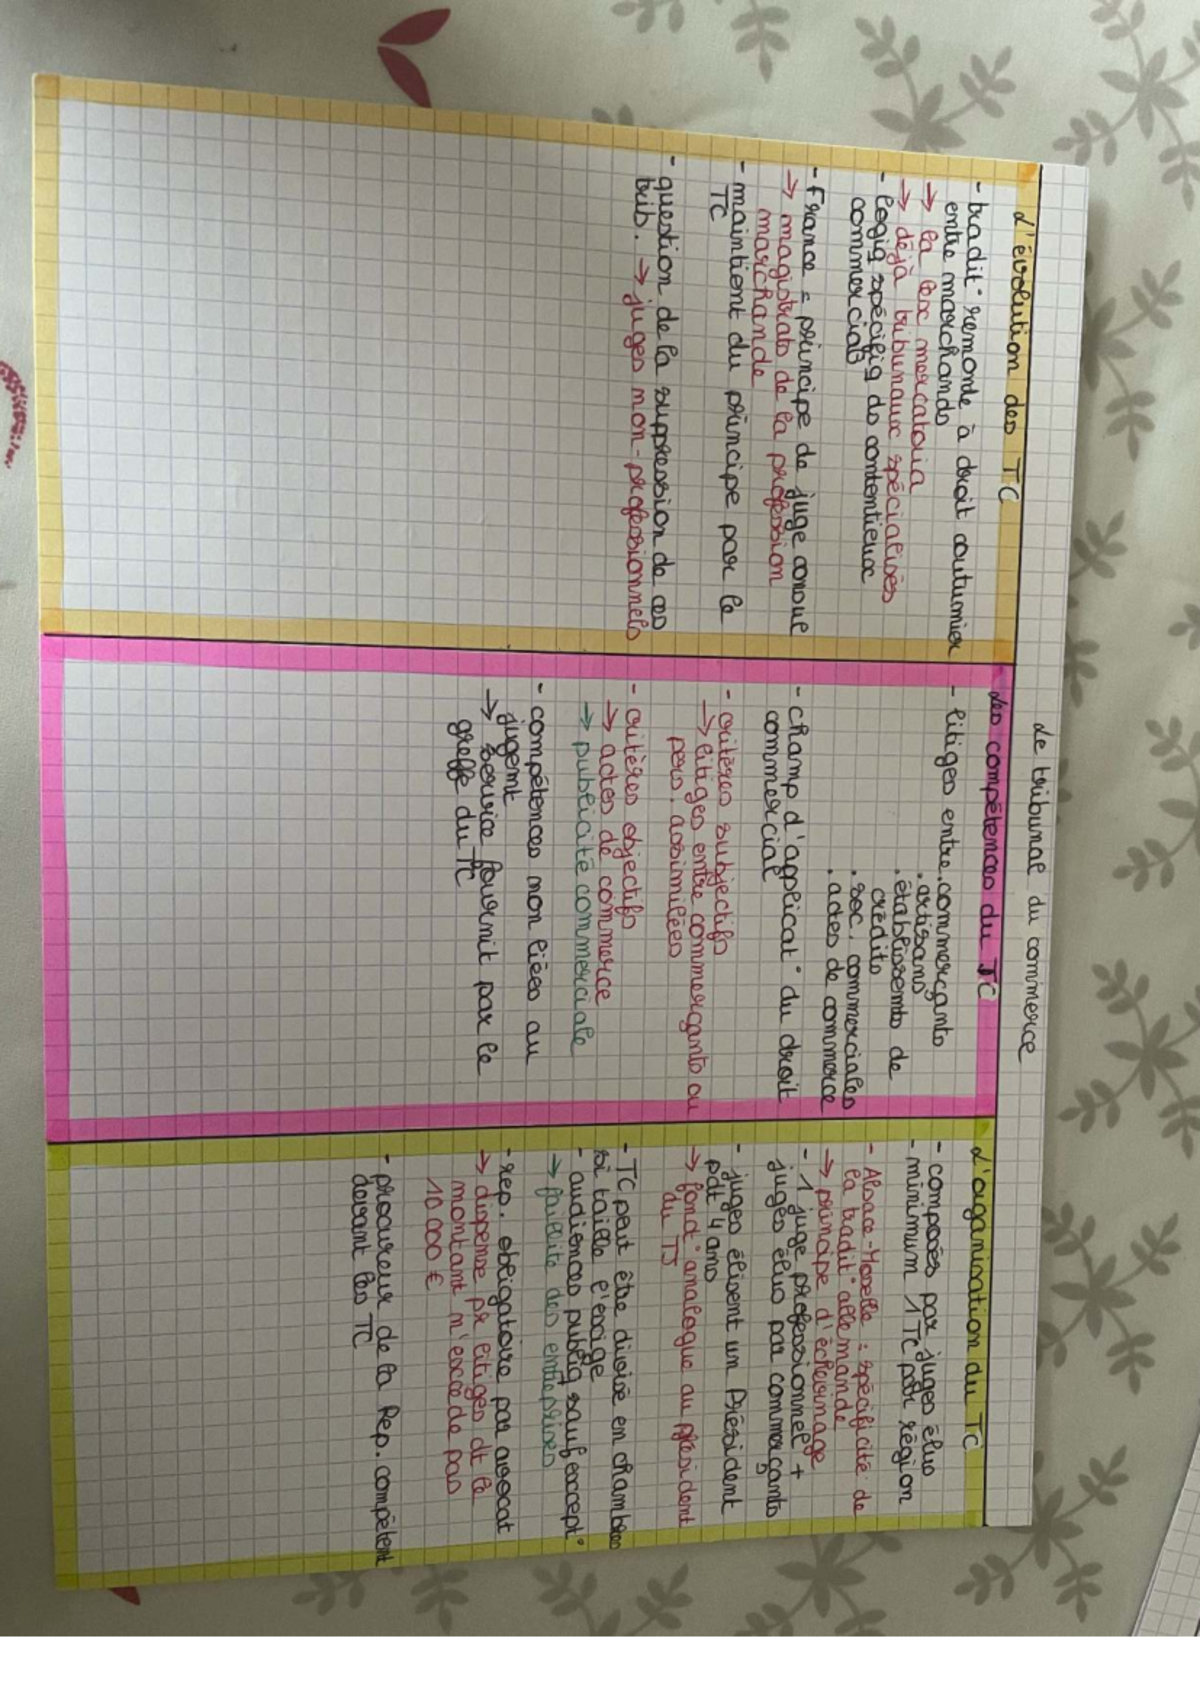 Le tribunal du commerce
L'évolution des TC
- tradit° remonde à droit coutumier
entre marchands
→ la lex mercatoria
→ déjà tribunaux spécialisés
- logiq spécifiq ds contentieux
commercial
- France = principe de juge consul
→ magistrats de la profession
marchande
- maintient du principe par le
TC
- question de la suppression de ces
trib. → juges non-professionnels
Les compétences du TC
- litiges entre . commerçants
. artisans
. établissemts de
crédits
. soc. commerciales
. actes de commerce
- champ d'applicat° du droit
commercial
- critères subjectifs
→ litiges entre commerçants ou
pers. assimilées
- critères objectifs
→ actes de commerce
→ publicité commerciale
- compétences non liées au
jugemt
→ service fournit par le
greffe du TC
L'organisation du TC
- composés par juges élus
- minimum 1 TC par région
- Alsace-Moselle : spécificité de
la tradit° allemande
→ principe d'échevinage
- 1 juge professionnel +
juges élus par commerçants
- juges élisent un Président
pdt 4 ans
→ fonct° analogue au président
du TJ
- TC peut être divisé en chambres
si taille l'exige
- audiences publiq sauf except°
→ faillite des entreprises
- rep. obligatoire par avocat
→ dispense pr litiges dt le
montant n'excède pas
10 000 €
- procureur de la Rep. compétent
devant les TC